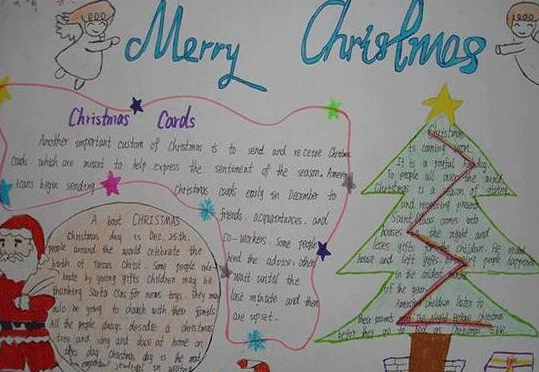 Merry Christmas
Christmas Cards
Another important custom of Christmas is to send and receive Christmas
cards which are meant to help express the sentiment of the season. Ameri-
cans begin sending christmas cards early in December to
friends, acquaintances, and
co-workers. Some people
heed the advice; others
wait until the
last minute and then
are upset.
A bout CHRISTMAS
Christmas day is Dec. 25th.
people around the world celebrate the
birth of Jesus Christ. Some people
by giving gifts children may be
thanking Santa Clas for news toys. They may
be going to church with their
All the people always a christmas
tree and sing and at home on
day. Christmas day is the most
in
Christmas
is coming soon.
It is a joyful
To people all over the world.
Christmas is a season of giving
and receiving presents
Santa Claus comes into
houses in the night and
gifts children. He
house and left gifts people
in the
of the year
American children listen to
their parents the Night Before Christmas
before they go to bed on Eve.